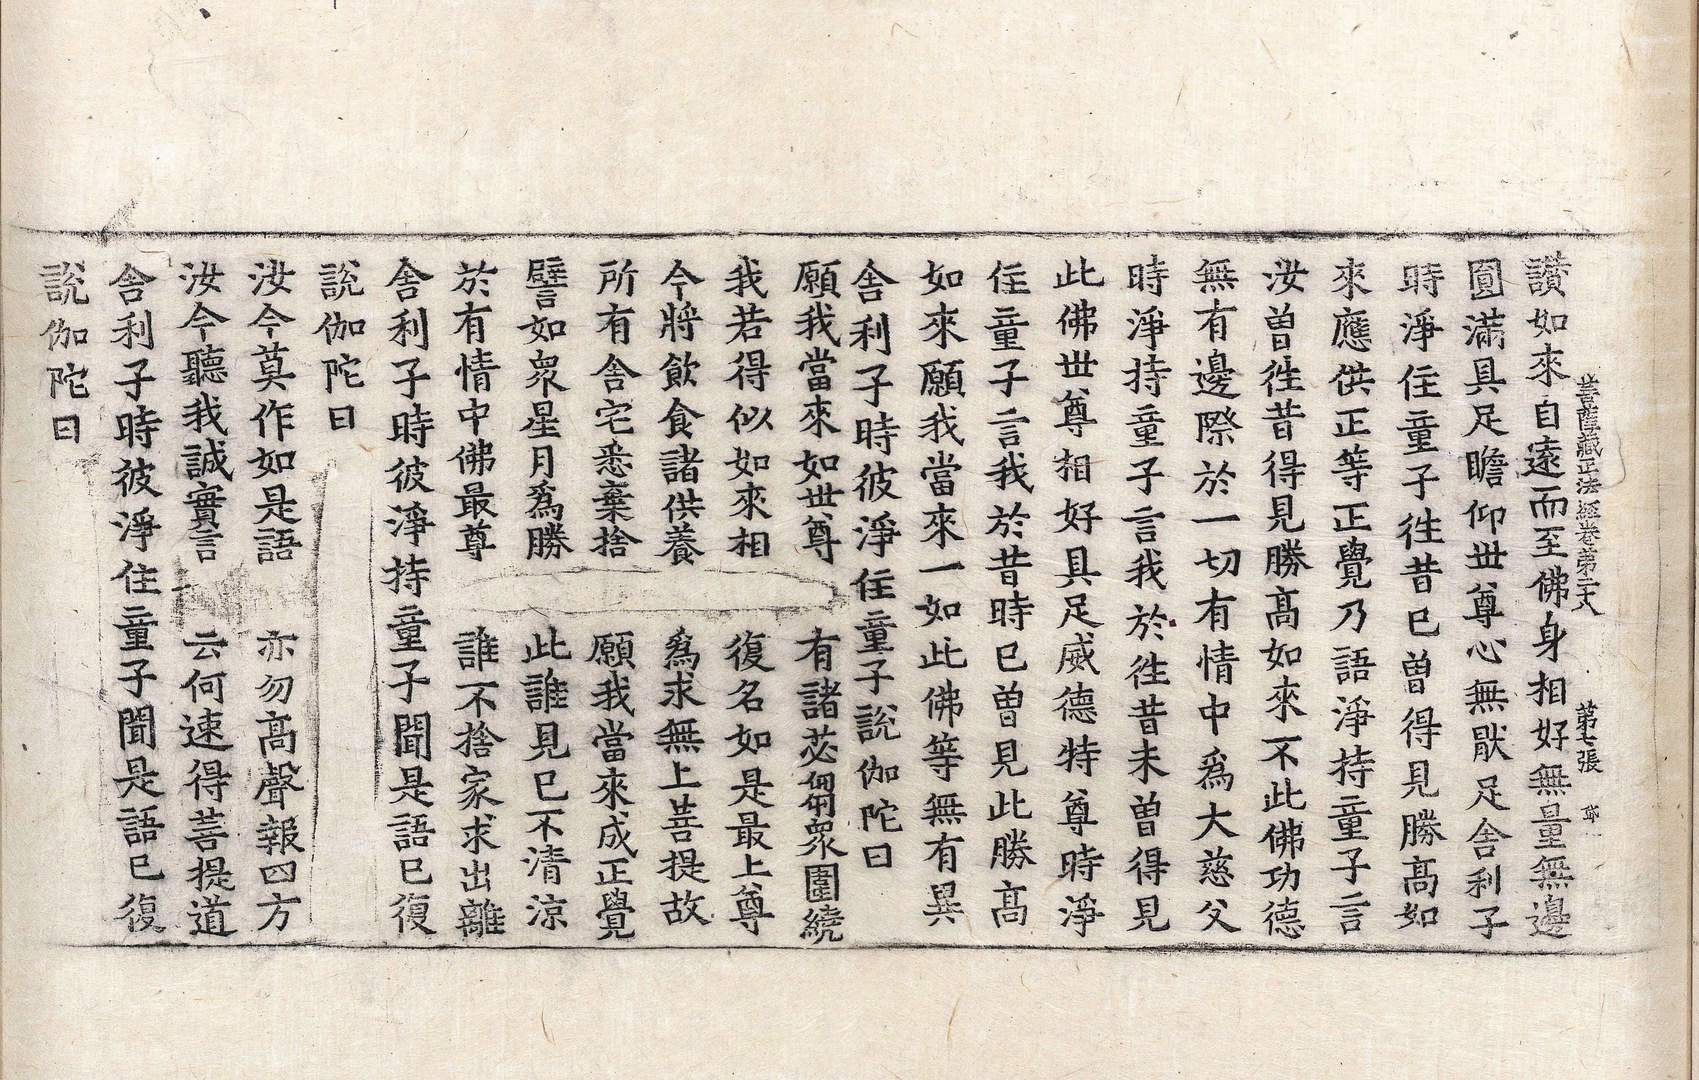 菩薩藏正法經卷第二十八 第七張
讚如來自遠而至佛身相好無量無邊
圓滿具足瞻仰世尊心無猒足舍利子
時淨住童子往昔已曾得見勝高如
來應供正等正覺乃語淨持童子言
汝曾往昔得見勝高如來不此佛功德
無有邊際於一切有情中爲大慈父
時淨持童子言我於往昔未曾得見
此佛世尊相好具足威德特尊時淨
住童子言我於昔時已曾見此勝高
如來願我當來一如此佛等無有異
舍利子時彼淨住童子說伽陀曰
願我當來如世尊 有諸苾芻眾圍繞
我若得似如來相 復名如是最上尊
今將飲食諸供養 爲求無上菩提故
所有舍宅悉棄捨 願我當來成正覺
譬如眾星月爲勝 此誰見已不清涼
於有情中佛最尊 誰不捨家求出離
舍利子時彼淨持童子聞是語已復
說伽陀曰
汝今莫作如是語 亦勿高聲報四方
汝今聽我誠實言 云何速得菩提道
舍利子時彼淨住童子聞是語已復
說伽陀曰